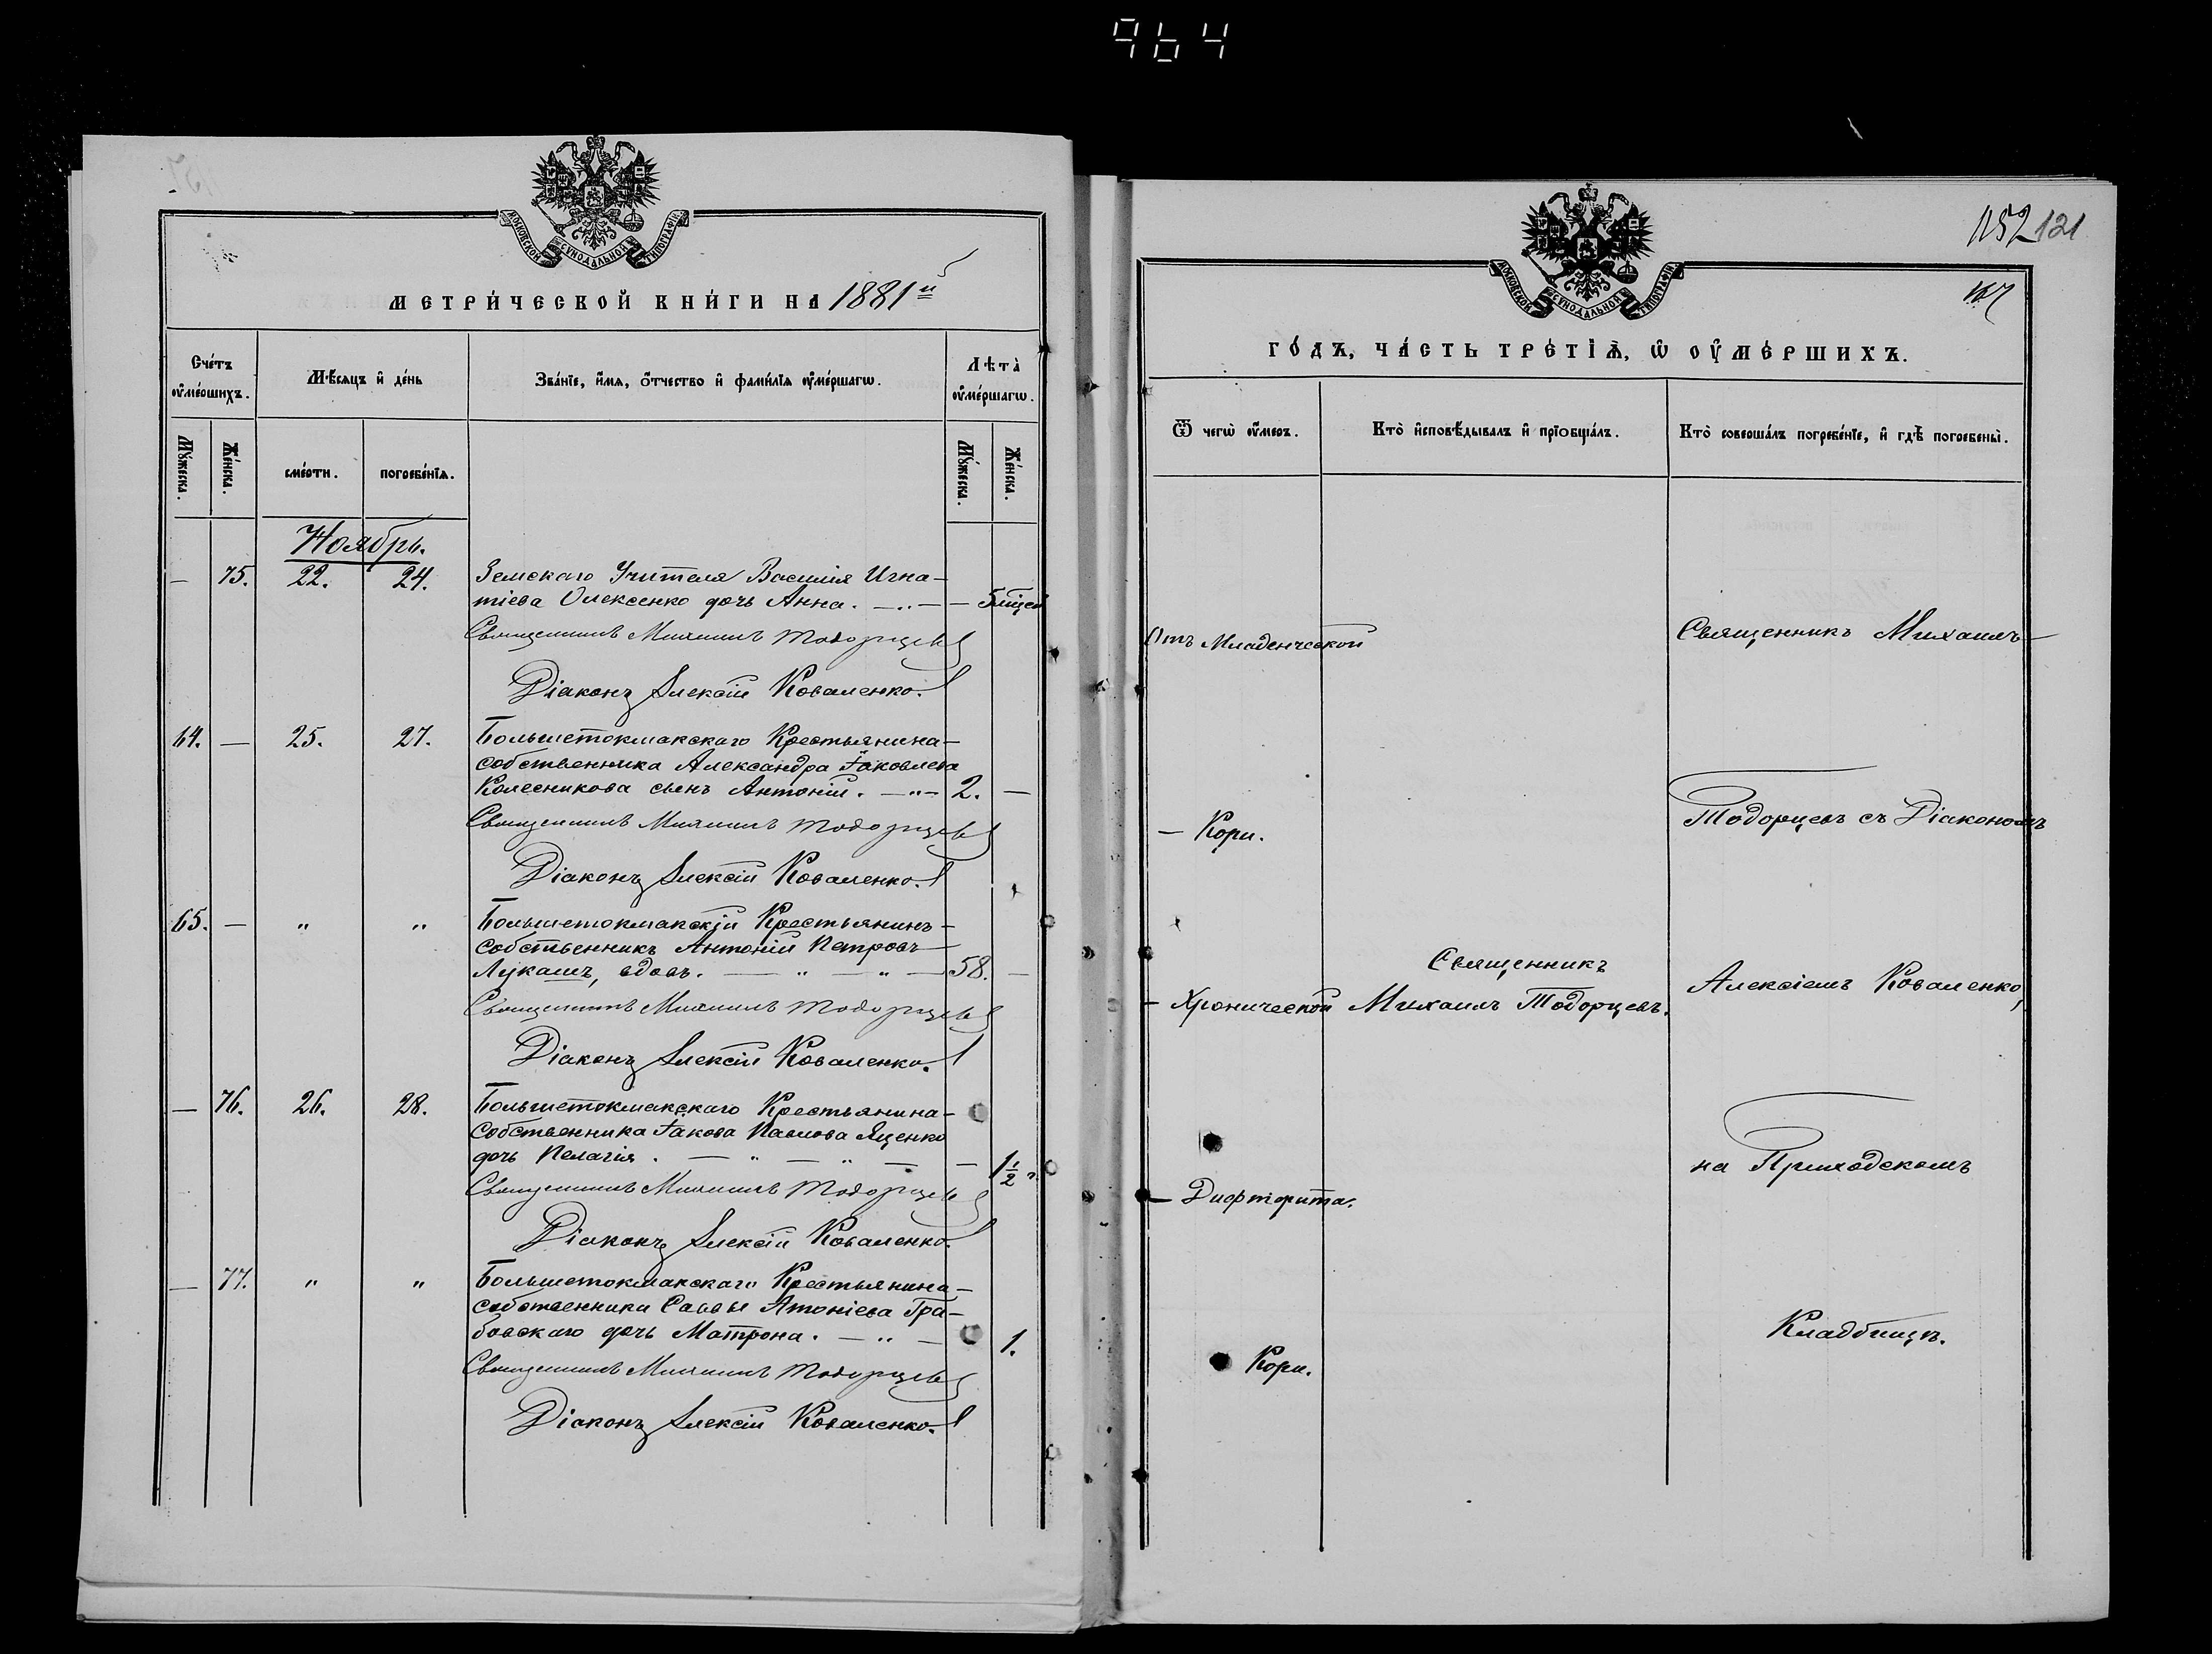 964
МОСКОВСКОЙ СѴНОДАЛЬНОЙ ТИПОГРАФІИ
МЕТРИ́ЧЕСКОЙ КНИ́ГИ НА 1881й
Сче́тъ ᲂу҆ме́ршихъ.
Мѣ́сяцъ и҆ де́нь
Зва́нїе, и҆́мя, ѻ҆́тчество и҆ фами́лїя ᲂу҆ме́ршагѡ.
Лѣта̀ ᲂу҆ме́ршагѡ.
Му́жеска.
Же́нска.
сме́рти.
погребе́нїѧ.
Му́жеска.
Же́нска.
Ноябрь.
— 75. 22. 24. Земскаго Учителя Василія Игна-
тіева Олексенко дочь Анна. — „ — — 5 м̃цей
Священникъ Михаилъ Тодорцевъ
Діаконъ Алексій Коваленко.
64. — 25. 27. Большетокмакскаго Крестьянина-
собственника Александра Іаковлева
Колесникова сынъ Антоній. — „ — 2. —
Священникъ Михаилъ Тодорцевъ
Діаконъ Алексій Коваленко.
65. — „ „ Большетокмакскій Крестьянинъ-
собственникъ Антоній Петровъ
Лукашъ, вдовъ. — „ — „ — 58. —
Священникъ Михаилъ Тодорцевъ
Діаконъ Алексій Коваленко.
— 76. 26. 28. Большетокмакскаго Крестьянина-
собственника Іакова Павлова Яценко
дочь Пелагія. — „ — „ — — 1½ г.
Священникъ Михаилъ Тодорцевъ
Діаконъ Алексій Коваленко.
— 77. „ „ Большетокмакскаго Крестьянина-
собственника Саввы Атоніева Гра-
бовскаго дочь Матрона. — „ — 1.
Священникъ Михаилъ Тодорцевъ
Діаконъ Алексій Коваленко.
152 121
МОСКОВСКОЙ СѴНОДАЛЬНОЙ ТИПОГРАФІИ
ГО́ДЪ, ЧА́СТЬ ТРЕ́ТІѦ, Ѡ҆ ОУ҆МЕ́РШИХЪ.
Ѿ чегѡ̀ ᲂу҆́меръ.
Кто̀ и҆сповѣ́дывалъ и҆ прїобща́лъ.
Кто̀ соверша́лъ погребе́нїе, и҆ гдѣ̀ погребены̀.
Отъ Младенческой
Священникъ Михаилъ
— Кори.
Тодорцевъ съ Діакономъ
— Хронической
Священникъ
Михаилъ Тодорцевъ.
Алексіемъ Коваленко,
— Дифтерита.
на Приходскомъ
Кори.
Кладбищѣ.